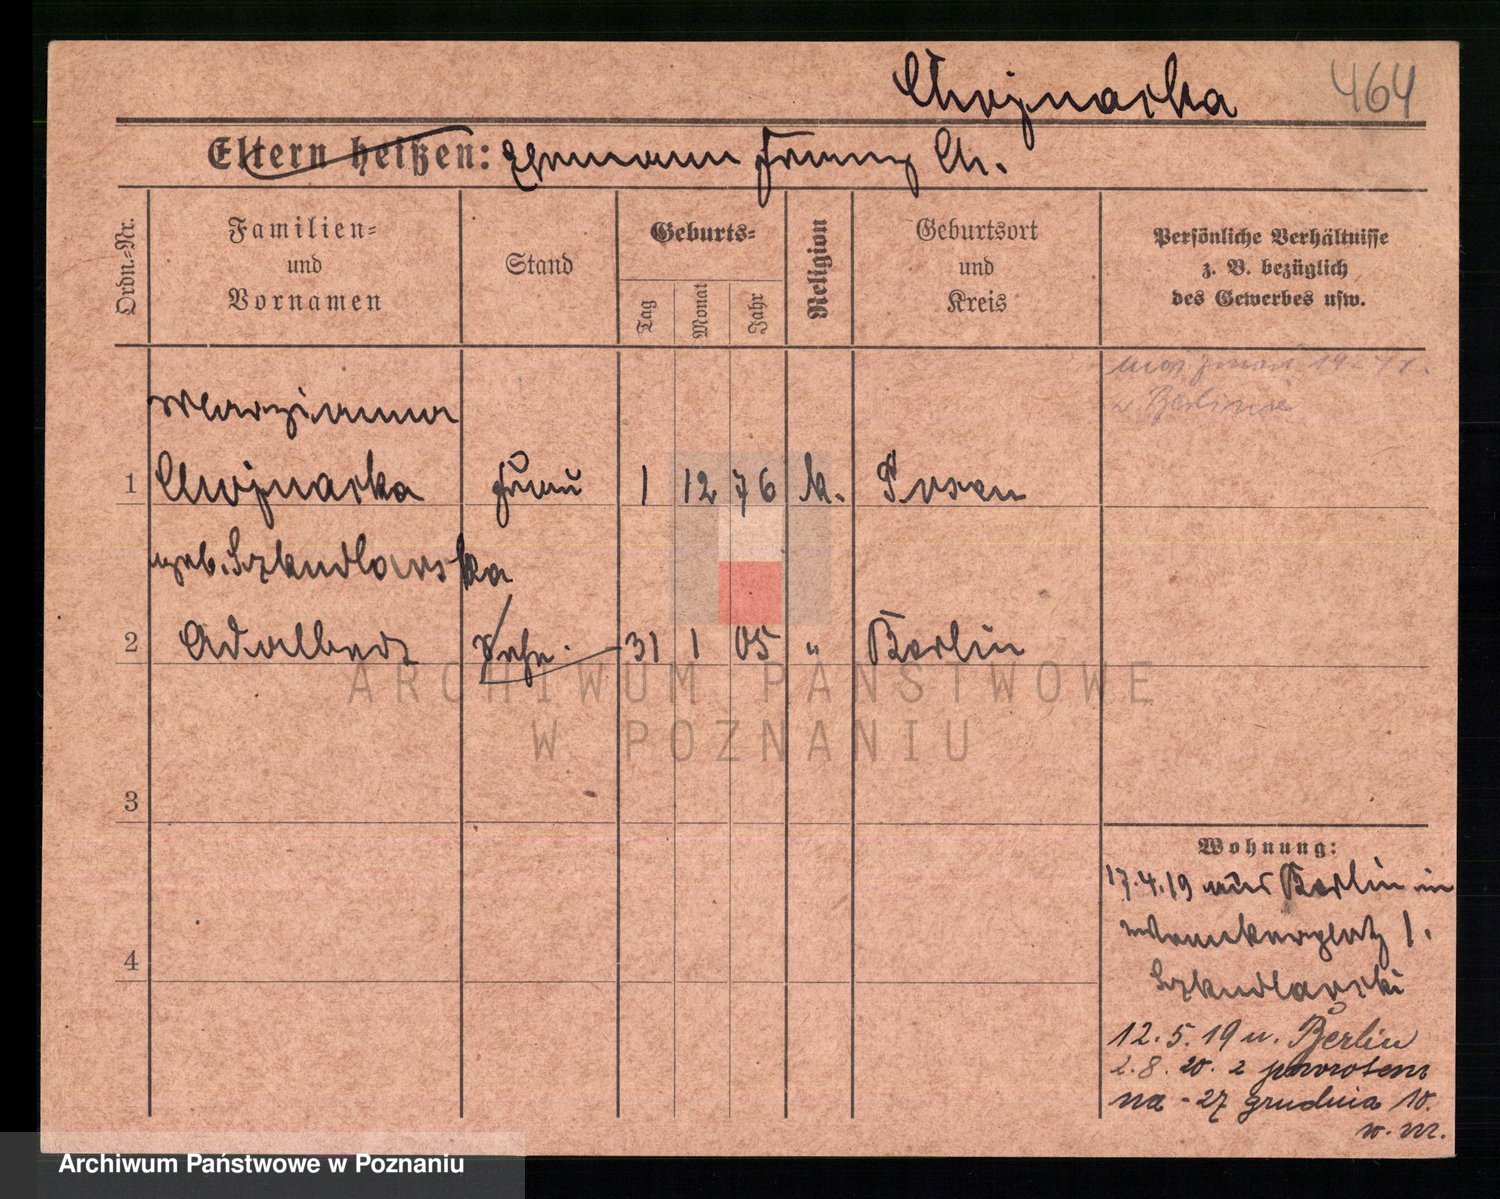 Chojnacka 464
Eltern heißen: Ehemann Franz Ch.
Ordn.-Nr.
Familien-
und
Vornamen
Stand
Geburts-
Tag
Monat
Jahr
Religion
Geburtsort
und
Kreis
Persönliche Verhältnisse
z. B. bezüglich
des Gewerbes usw.
mąż zmarł 1924 r.
w Berlinie
Marzianna
1 Chojnacka Frau 1 12 76 k. Posen
geb. Szkudlarska
2 Adalbert 31 1 05 " Berlin
3
4
Wohnung:
17.4.19 aus Berlin in
1.
Szkudlarski
12.5.19 n. Berlin
2.8.20. z powrotem
na - 27 grudnia 10.
w. m.
ARCHIWUM PAŃSTWOWE
W POZNANIU
Archiwum Państwowe w Poznaniu